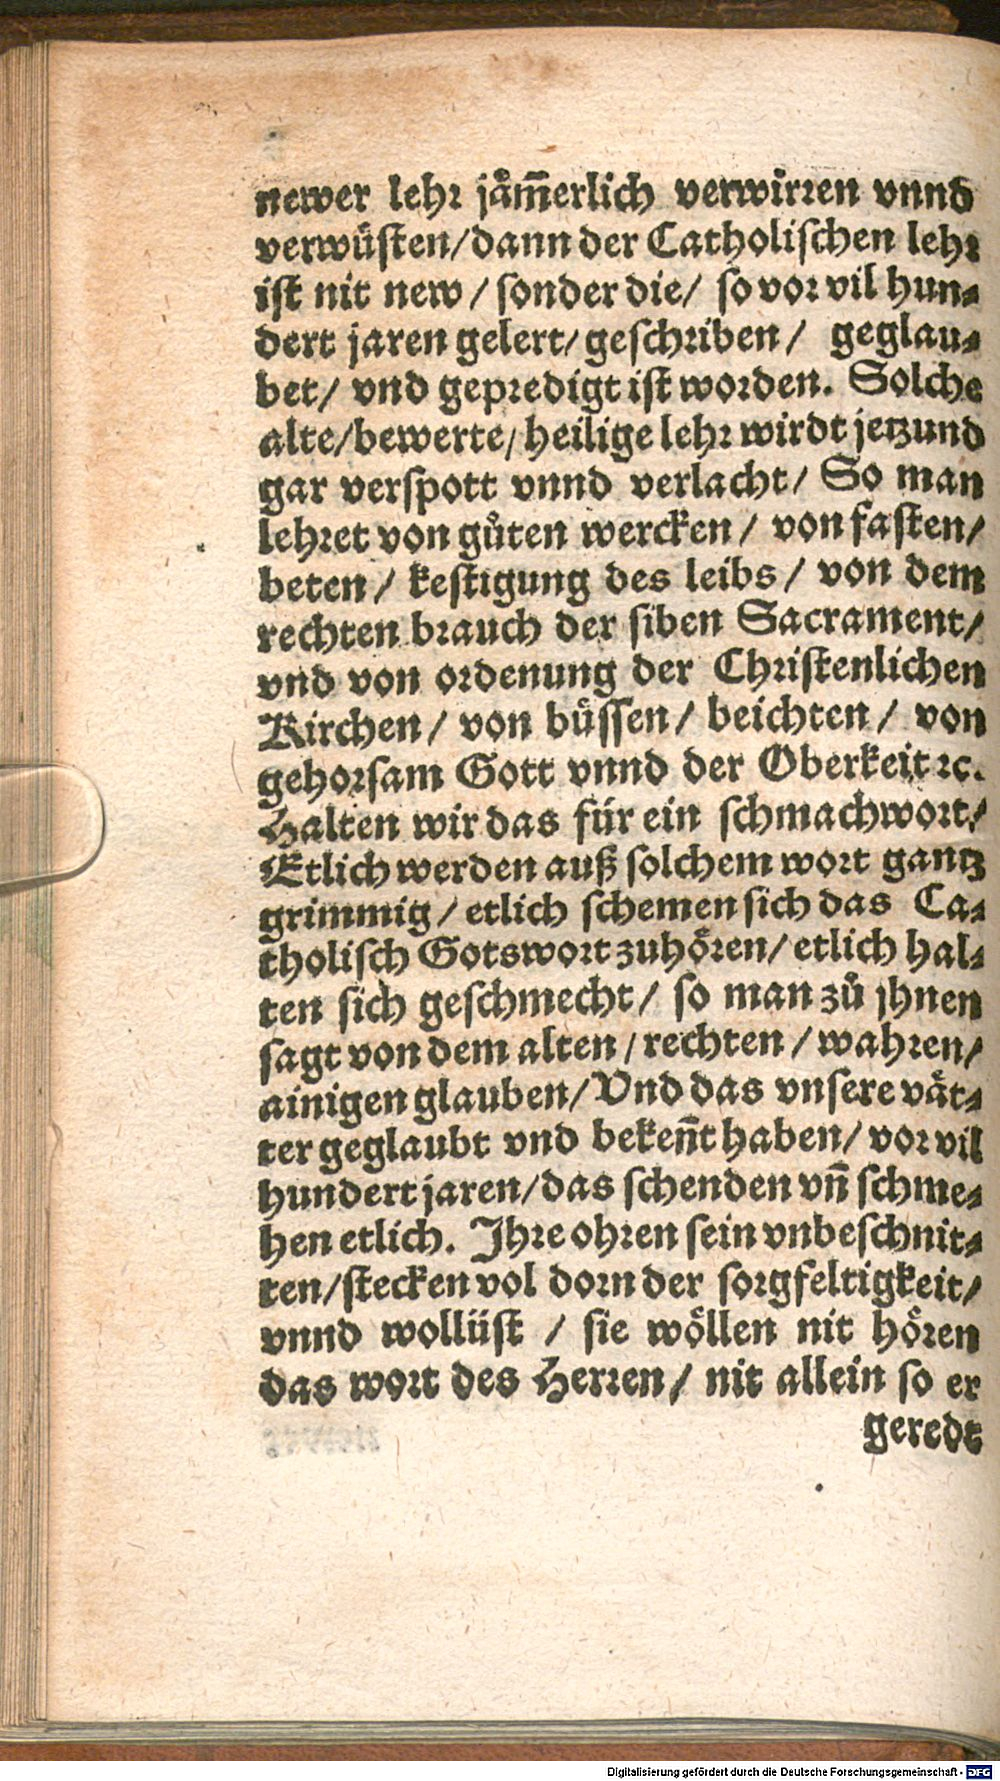 newer lehr jaͤm̃erlich verwirren vnnd
verwuͤſten/dann der Catholiſchen lehr
iſt nit new / ſonder die/ ſo vor vil hun⸗
dert jaren gelert/ geſchriben / geglau⸗
bet/ vnd gepredigt iſt worden. Solche
alte/bewerte/ heilige lehr wirdt jetzund
gar verſpott vnnd verlacht/ So man
lehret von guͦten wercken / von faſten/
beten / keſtigung des leibs / von dem
rechten brauch der ſiben Sacrament/
vnd von ordenung der Chriſtenlichen
Kirchen/ von buͤſſen/ beichten / von
gehorſam Gott vnnd der Oberkeit ꝛc.
Halten wir das für ein ſchmachwort/
Etlich werden auß ſolchem wort gantz
grimmig / etlich ſchemen ſich das Ca⸗
tholiſch Gotswort zuhoͤren/ etlich hal⸗
ten ſich geſchmecht/ ſo man zuͦ jhnen
ſagt von dem alten / rechten / wahren/
ainigen glauben/ Vnd das vnſere vaͤt⸗
ter geglaubt vnd bekeñt haben/ vor vil
hundert jaren/das ſchenden vñ ſchme⸗
hen etlich. Jhre ohren ſein vnbeſchnit⸗
ten/ſtecken vol dorn der ſorgfeltigkeit/
vnnd wollüſt / ſie woͤllen nit hoͤren
das wort des Herren/ nit allein ſo er
geredt
Digitalisierung gefördert durch die Deutsche Forschungsgemeinschaft - DFG